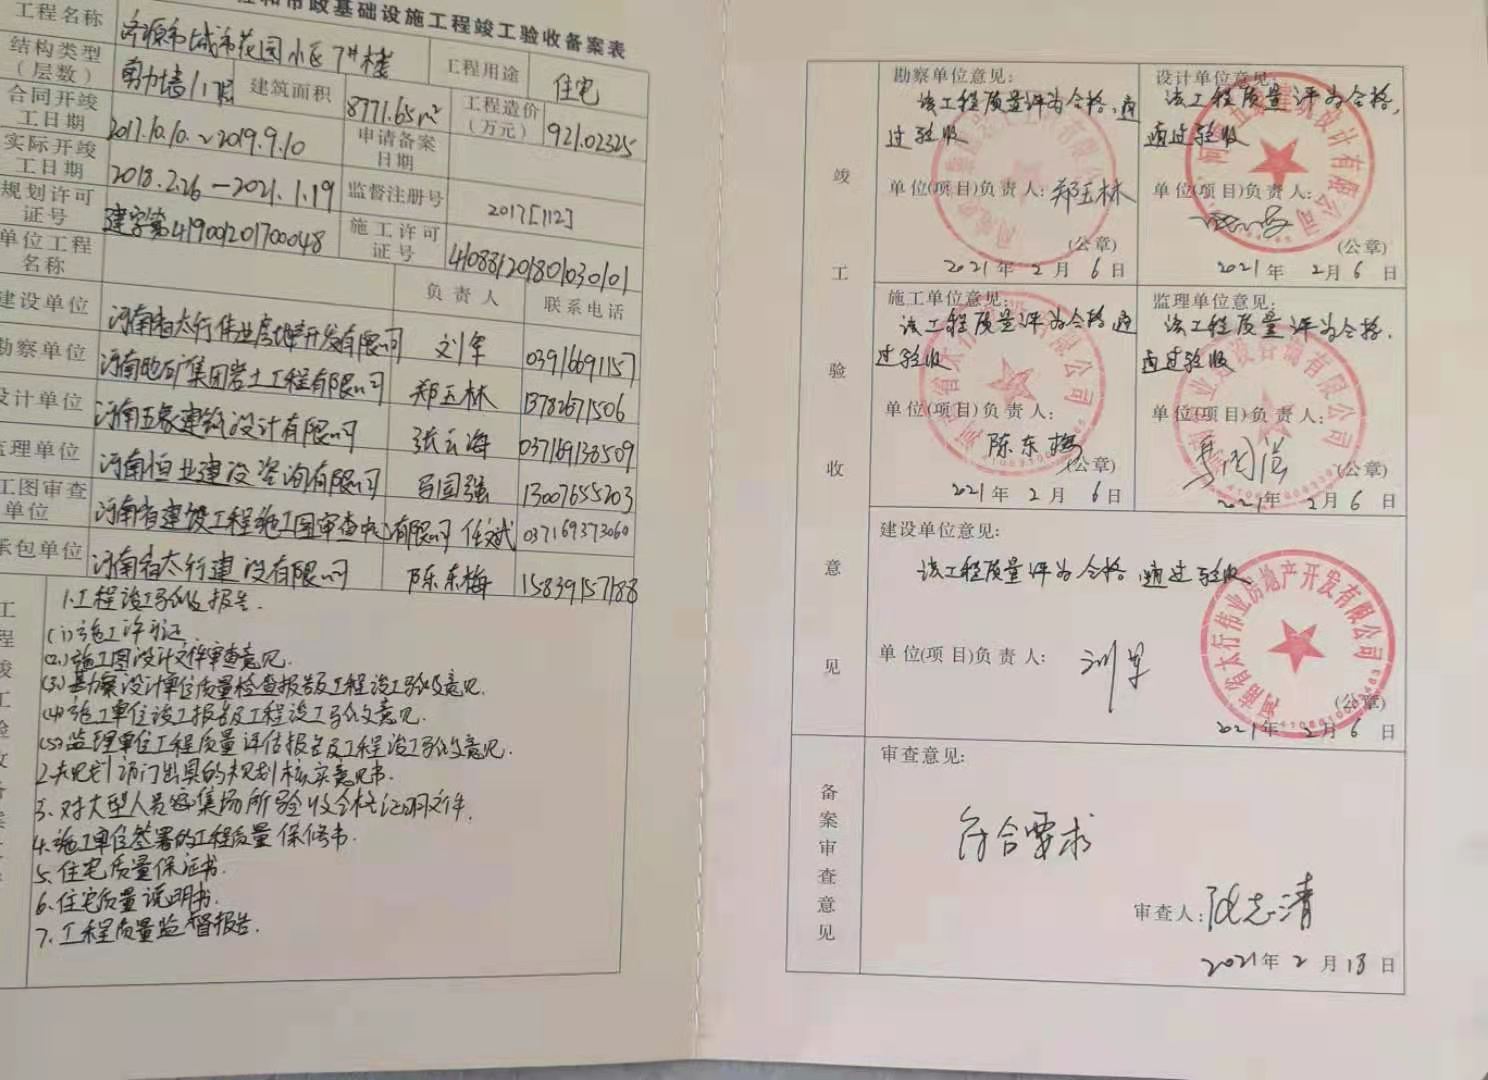 和市政基础设施工程竣工验收备案表
工程名称 济源市城市花园小区7#楼 工程用途 住宅
结构类型（层数） 剪力墙/17层 建筑面积 8771.65m² 工程造价（万元） 921.02325
合同开竣工日期 2017.10.10.~2019.9.10 申请备案日期
实际开竣工日期 2018.2.26—2021.1.19 监督注册号 2017[112]
规划许可证号 建字第419001201700048 施工许可证号 410881201801030101
单位工程名称 负责人 联系电话
建设单位 河南省太行伟业房地产开发有限公司 刘军 03916691157
勘察单位 河南地矿集团岩土工程有限公司 郑玉林 13782671506
设计单位 河南五象建筑设计有限公司 张云海 037169138509
监理单位 河南恒业建设咨询有限公司 马国强 13007655203
工图审查单位 河南省建设工程施工图审查中心有限公司 任文斌 037169373060
承包单位 河南省太行建设有限公司 陈东梅 15839157188
1.工程竣工验收报告.
(1)施工许可证
(2)施工图设计文件审查意见.
(3)勘察设计单位质量检查报告及工程竣工验收意见.
(4)施工单位竣工报告及工程竣工验收意见.
(5)监理单位工程质量评估报告及工程竣工验收意见.
2.夫规划部门出具的规划核实意见书.
3.对大型人员密集场所验收合格证明文件.
4.施工单位签署的工程质量保修书.
5.住宅质量保证书.
6.住宅质量说明书.
7.工程质量监督报告.
竣工验收意见
勘察单位意见:
该工程质量评为合格,通
过验收
单位(项目)负责人: 郑玉林
(公章)
2021年2月6日
设计单位意见:
该工程质量评为合格,
通过验收
单位(项目)负责人:
(公章)
2021年2月6日
施工单位意见:
该工程质量评为合格通
过验收
单位(项目)负责人:
陈东梅
(公章)
2021年2月6日
监理单位意见:
该工程质量评为合格.
通过验收
单位(项目)负责人:
马国强
(公章)
2021年2月6日
建设单位意见:
该工程质量评为合格,通过验收
单位(项目)负责人: 刘军
河南省太行伟业房地产开发有限公司
(公章)
2021年2月6日
备案审查意见
审查意见:
符合要求
审查人: 张志清
2021年2月18日